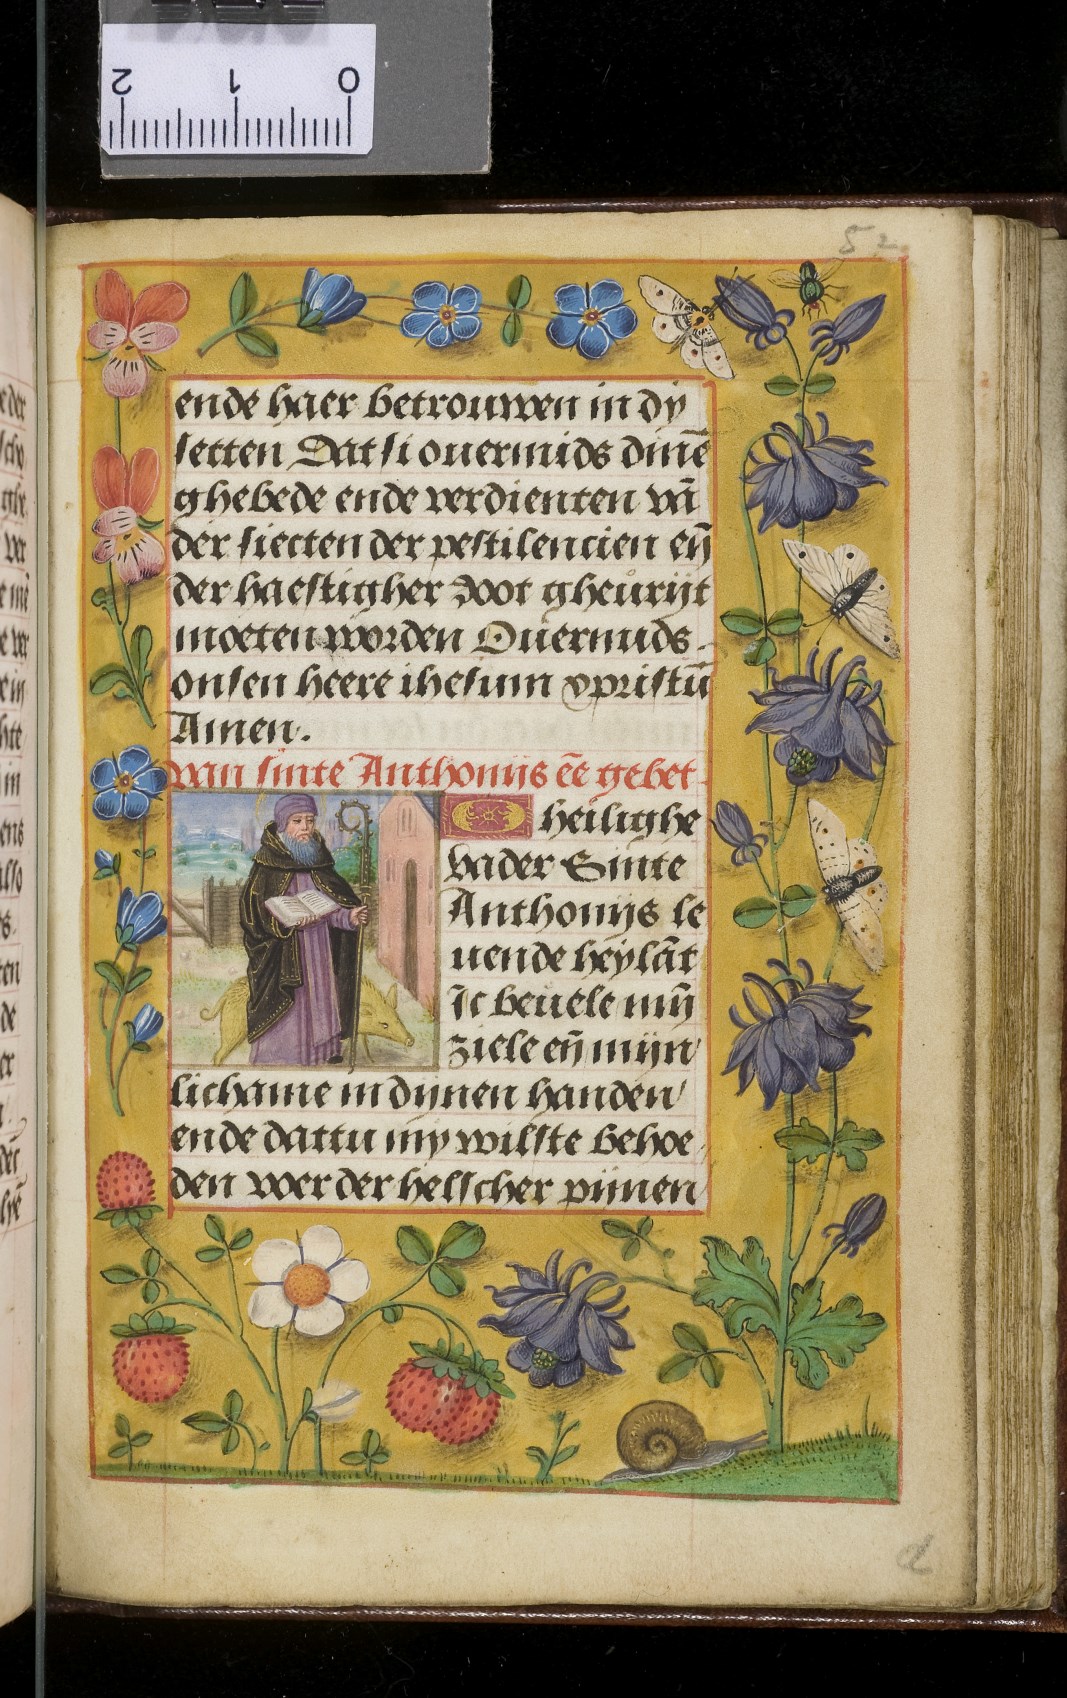 2 1 0
52
ende haer betrouwen in dy
setten Dat si ouermids dinē
ghebede ende verdienten vā
der siecten der pestilencien eñ
der haestigher doot gheurijt
moeten worden Ouermids
onsen heere ihesum xpristū
Amen.
van sinte Anthonijs ēē gebet
O heilighe
vader Sinte
Anthonijs le
uende heylāt
Ic beuele mijn
ziele eñ mijn
lichame in dijnen handen
ende dattu my wilste behoe
den voer der helscher pijnen
d